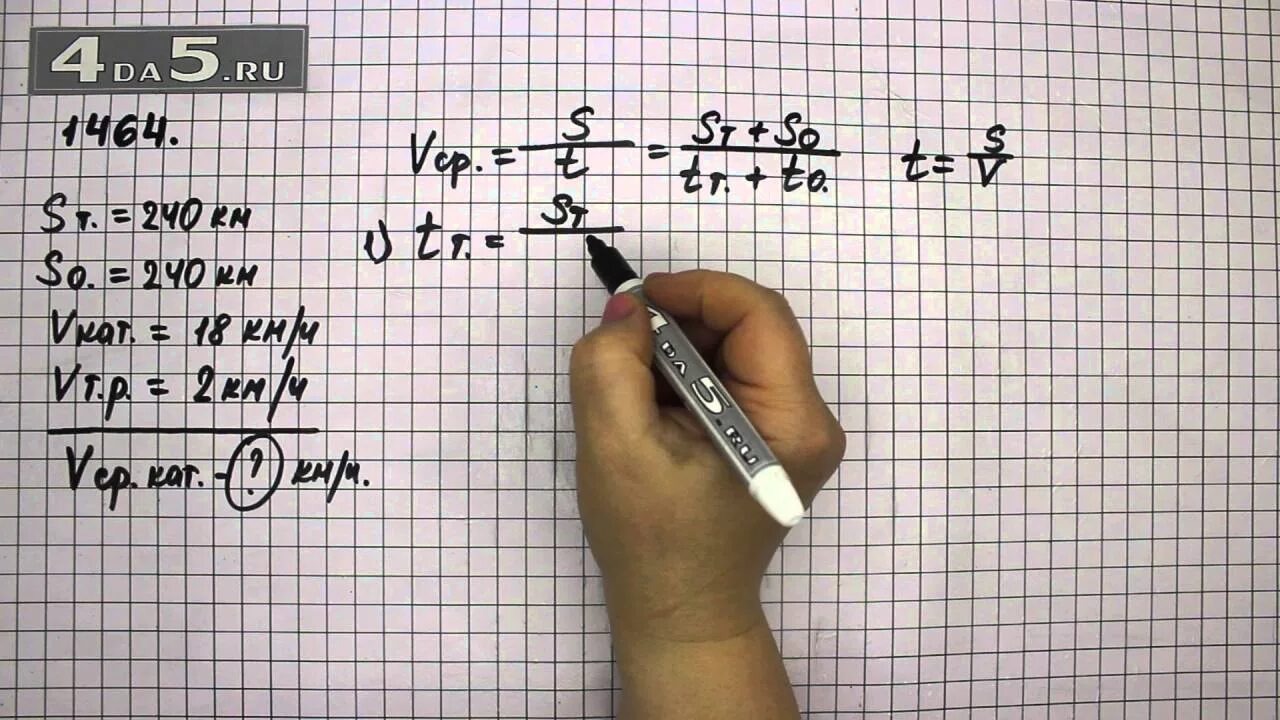 4DA5.RU
1464.
Sт. = 240 км
Sо. = 240 км
Vкат. = 18 км/ч
Vт.р. = 2 км/ч
Vср. кат. - ? км/ч.
Vср. = S/t = Sт + Sо/tт. + tо. t = S/V
1) tт. = Sт
4DA5.RU